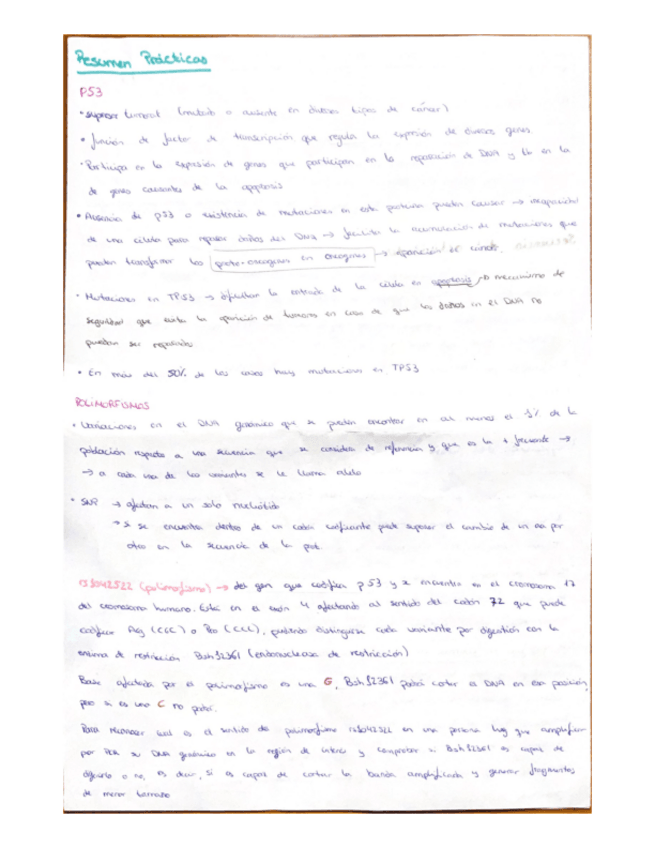 Resumen Prácticas
P53
• supresor tumoral (mutado o ausente en diversos tipos de cáncer)
• función de factor de transcripción que regula la expresión de diversos genes.
• Participa en la expresión de genes que participan en la reparación de DNA y tb en la
de genes causantes de la apoptosis
• Ausencia de p53 o existencia de mutaciones en esta proteína pueden causar → incapacidad
de una célula para reparar daños del DNA → facilita la acumulación de mutaciones que
pueden transformar los proto-oncogenes en oncogenes → aparición de cáncer
• Mutaciones en TP53 → dificultan la entrada de la célula en apoptosis → mecanismo de
seguridad que evita la aparición de tumores en caso de que los daños en el DNA no
puedan ser reparados
• En más del 50% de los casos hay mutaciones en TP53
POLIMORFISMOS
• Variaciones en el DNA genómico que se pueden encontrar en al menos el 1% de la
población respecto a una secuencia que se considera de referencia y que es la + frecuente →
→ a cada una de las variantes se le llama alelo
• SNP → afectan a un solo nucleótido
→ si se encuentra dentro de un codón codificante puede suponer el cambio de un aa por
otro en la secuencia de la prot.
rs1042522 (polimorfismo) → del gen que codifica p53 y se encuentra en el cromosoma 17
del cromosoma humano. Está en el exón 4 afectando al sentido del codón 72 que puede
codificar Arg (CGC) o Pro (CCC), pudiendo distinguirse cada variante por digestión con la
enzima de restricción Bsh1236I (endonucleasa de restricción)
Base afectada por el polimorfismo es una G, Bsh1236I podrá cortar el DNA en esa posición,
pero si es una C no podrá.
Para reconocer cual es el sentido de polimorfismo rs1042522 en una persona hay que amplificar
por PCR su DNA genómico en la región de interés y comprobar si Bsh1236I es capaz de
digerirlo o no, es decir, si es capaz de cortar la banda amplificada y generar fragmentos
de menor tamaño